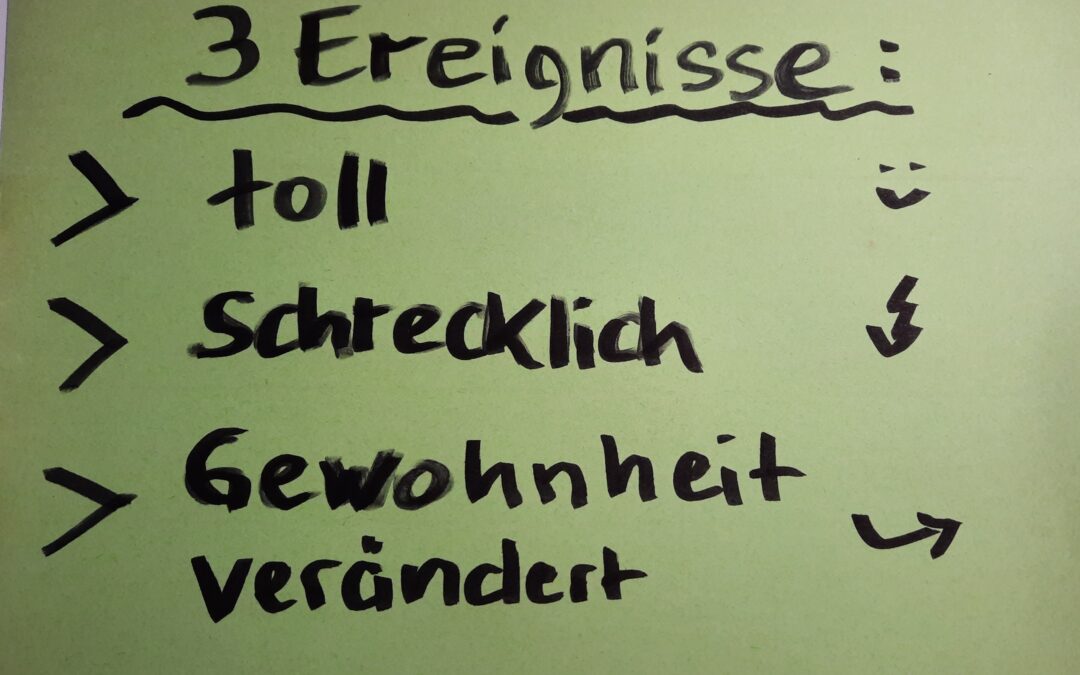 3 Ereignisse:
> toll
> Schrecklich
> Gewohnheit
verändert